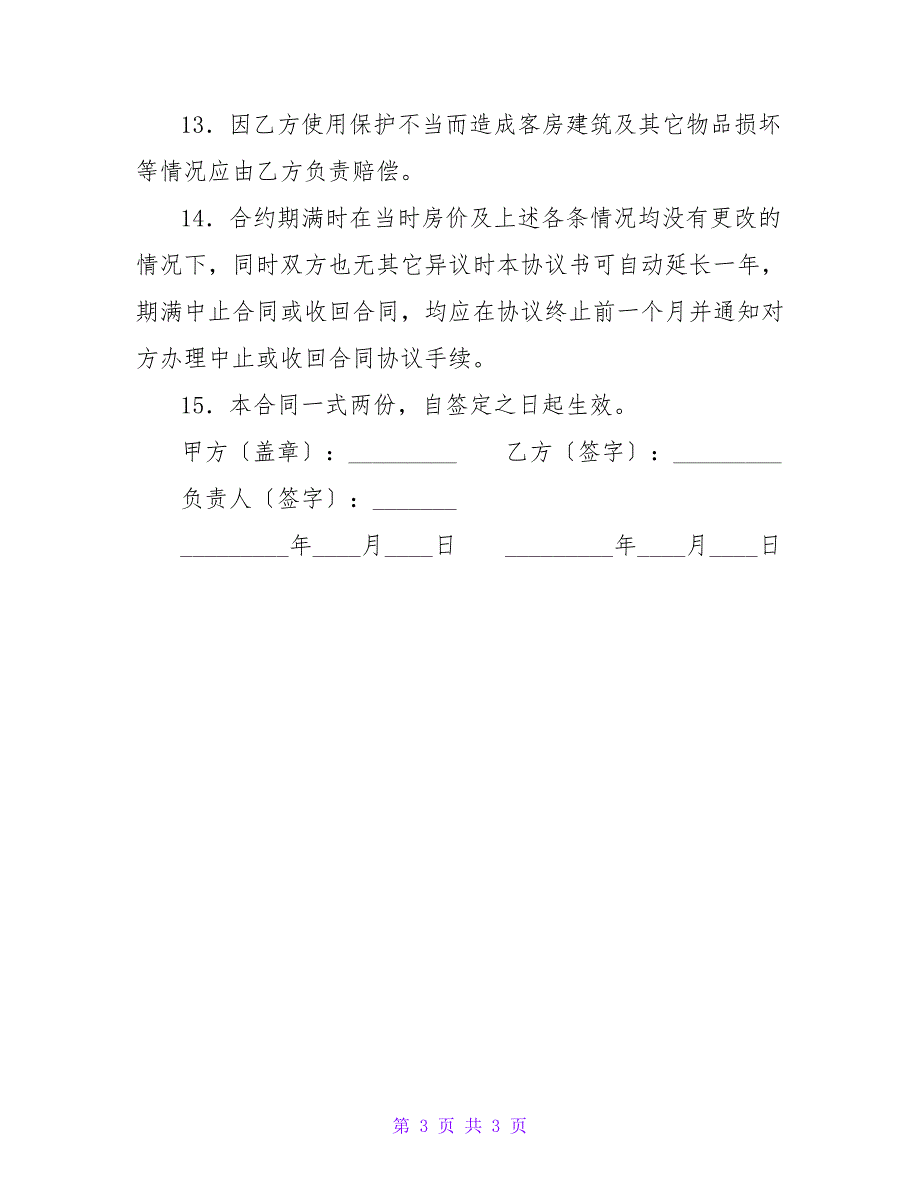 13．因乙方使用保护不当而造成客房建筑及其它物品损坏
等情况应由乙方负责赔偿。
14．合约期满时在当时房价及上述各条情况均没有更改的
情况下，同时双方也无其它异议时本协议书可自动延长一年，
期满中止合同或收回合同，均应在协议终止前一个月并通知对
方办理中止或收回合同协议手续。
15．本合同一式两份，自签定之日起生效。
甲方〔盖章〕：_________　　乙方〔签字〕：_________
负责人〔签字〕：_______
_________年____月____日　　_________年____月____日
第 3 页 共 3 页